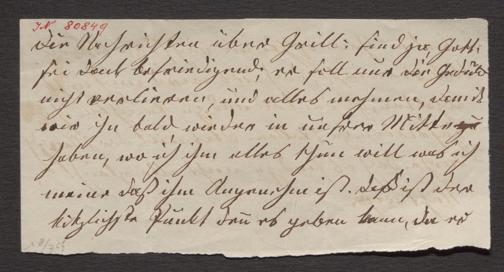 I.N. 80849
Die Nachrichten über Grill: sind ja, Gott
sei dank befriedigend, er soll nur die Geduld
nicht verlieren, und alles nehmen, damit
wir ihn bald wieder in unsere Mitte
haben, wo ich ihm alles thun will was ich
meine daß ihm Angenehm ist. Daß ist der
kitzlichste Punkt den es geben kann, da er